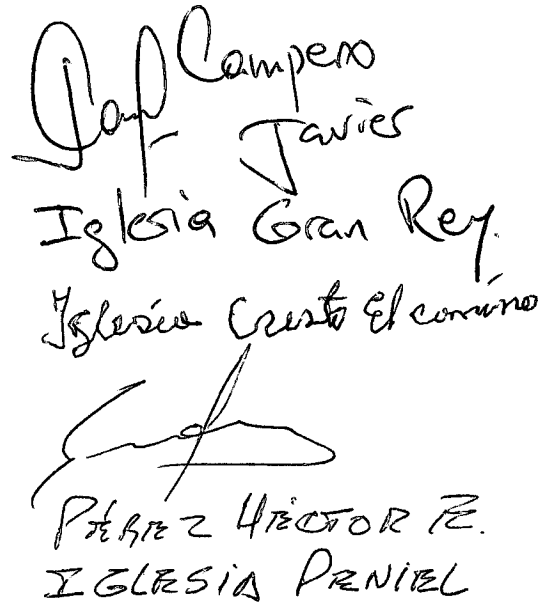 Campero
Javier
Iglesia Gran Rey.
Iglesia Cristo El camino
PÉREZ HÉCTOR E.
IGLESIA PENIEL